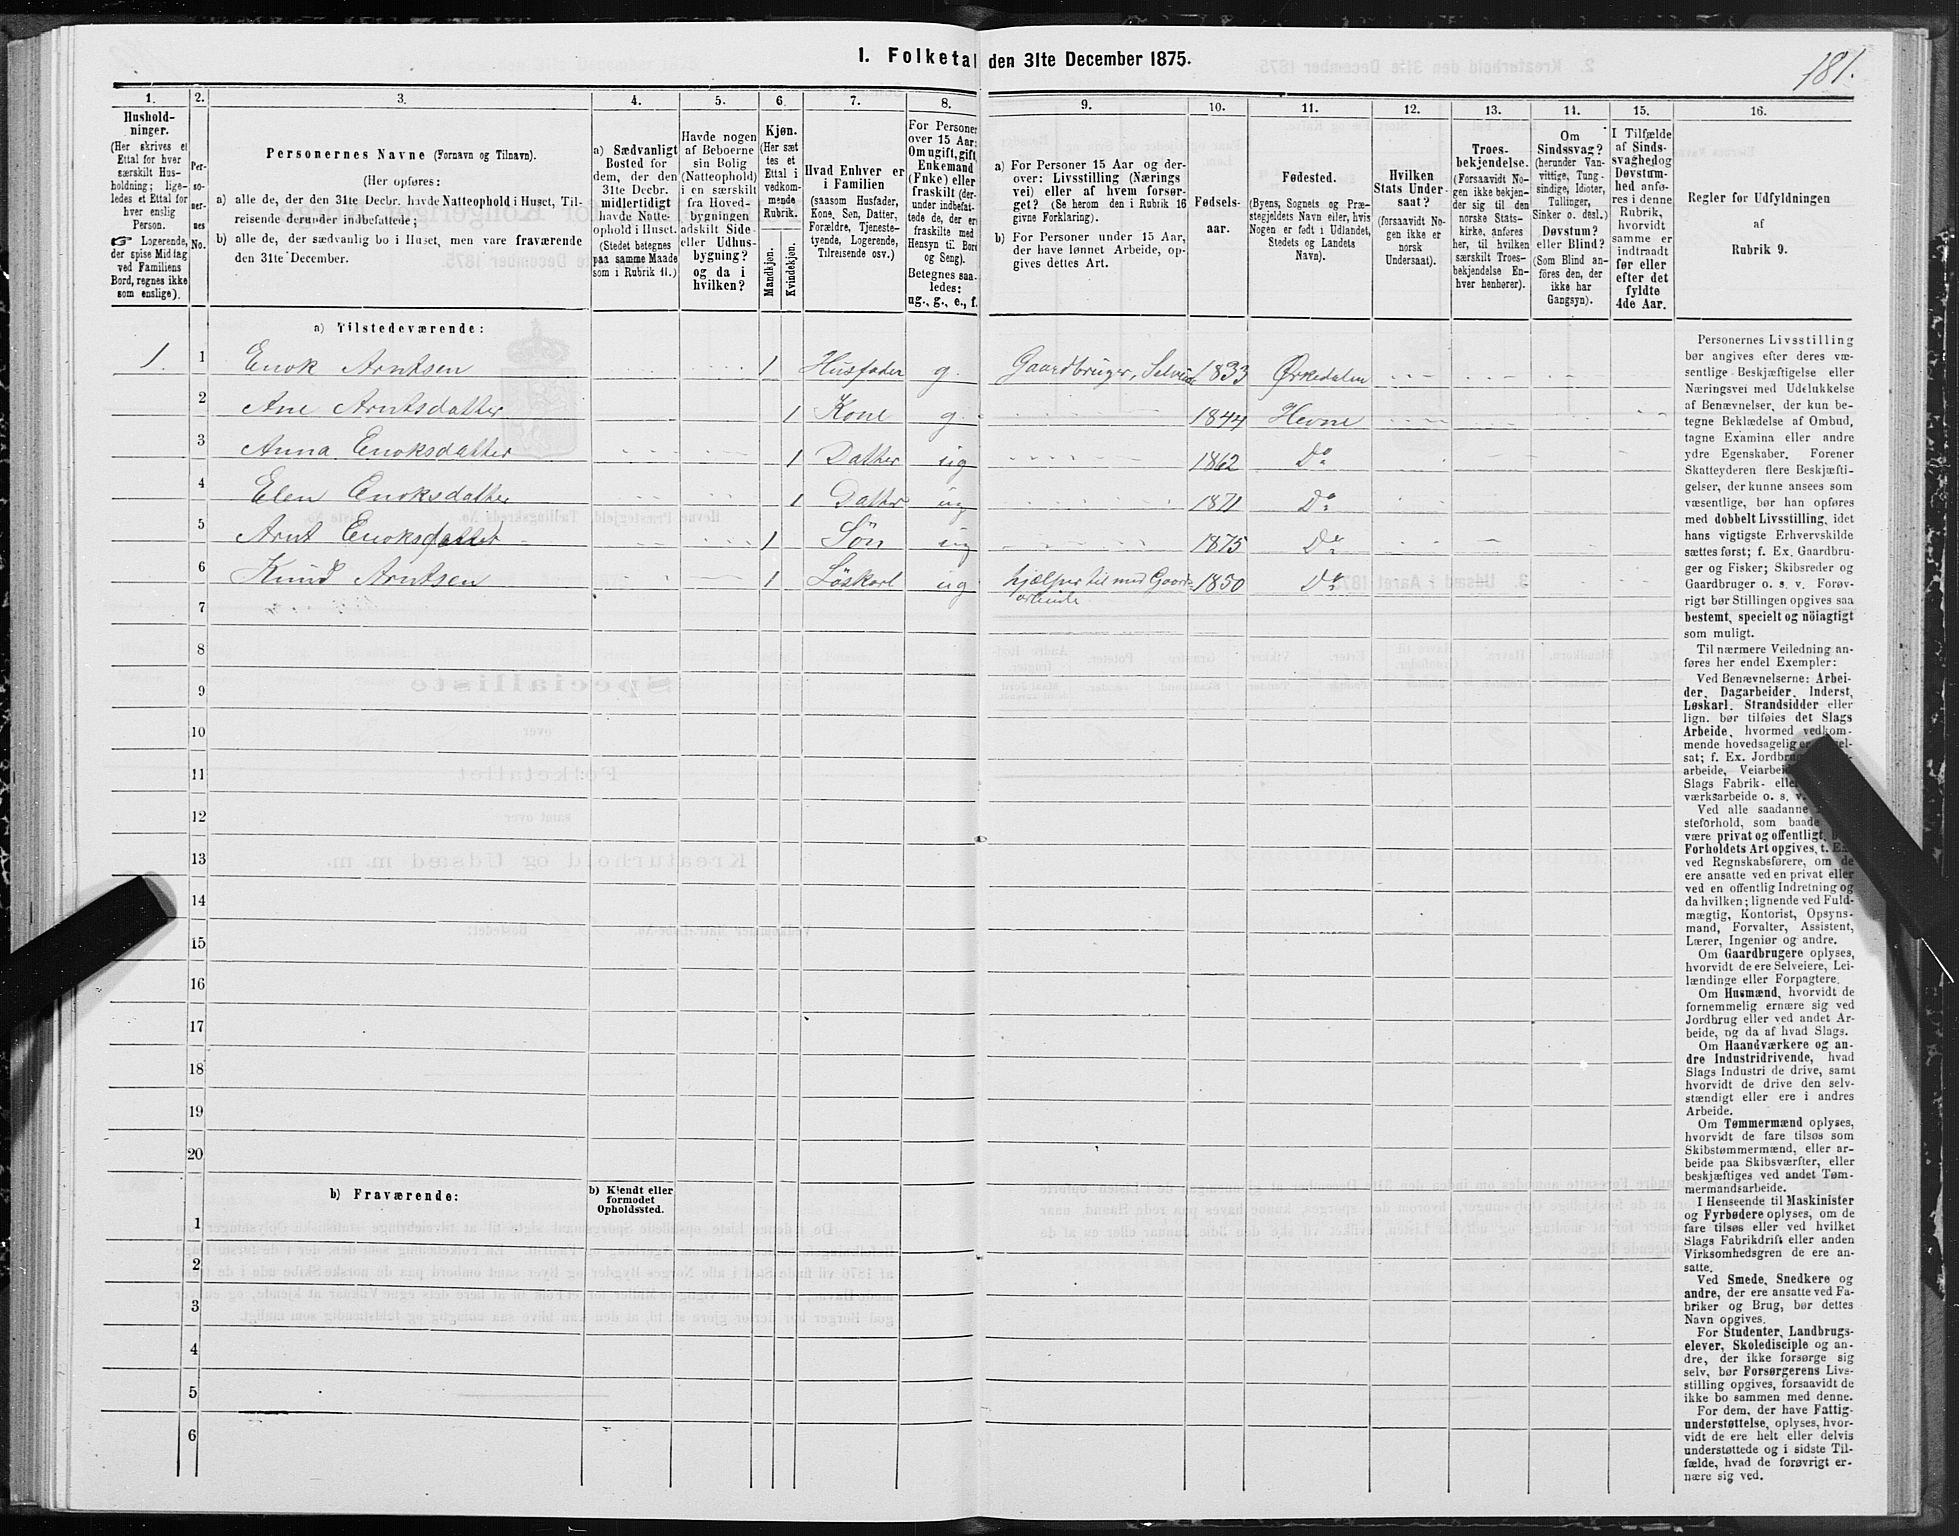 1. Folketal den 31te December 1875.
181.
1.
2.
3.
4.
5.
6.
7.
8.
9.
10.
11.
12.
13.
14.
15.
16.
Hushold-
ninger.
(Her skrives et
Ettal for hver
særskilt Hus-
holdning; lige-
ledes et Ettal for
hver enslig
Person.
☞ Logerende,
der spise Middag
ved Familiens
Bord, regnes ikke
som enslige).
Per-
so-
ner-
nes
No.
Personernes Navne (Fornavn og Tilnavn).
(Her opføres:
a) alle de, der den 31te Decbr. havde Natteophold i Huset, Til-
reisende derunder indbefattede;
b) alle de, der sædvanlig bo i Huset, men vare fraværende
den 31te December.
a) Sædvanligt
Bosted for
dem, der den
31te Decbr.
midlertidigt
havde Natte-
ophold i Huset.
(Stedet betegnes
paa samme Maade
som i Rubrik 11.)
Havde nogen
af Beboerne
sin Bolig
(Natteophold)
i en særskilt
fra Hoved-
bygningen
adskilt Side-
eller Udhus-
bygning?
og da i
hvilken?
Kjøn.
(Her sæt-
tes et
Ettal i
vedkom-
mende
Rubrik.
Mandkjøn.
Kvindekjøn.
Hvad Enhver er
i Familien
(saasom Husfader,
Kone, Søn, Datter,
Forældre, Tjeneste-
tyende, Logerende,
Tilreisende osv.)
For Personer
over 15 Aar:
Om ugift, gift,
Enkemand
(Enke) eller
fraskilt (der-
under indbefat-
tede de, der ere
fraskilte med
Hensyn til Bord
og Seng).
Betegnes saa-
ledes:
ug., g., e., f.
a) For Personer 15 Aar og der-
over: Livsstilling (Nærings-
vei) eller af hvem forsør-
get? (Se herom den i Rubrik 16
givne Forklaring).
b) For Personer under 15 Aar,
der have lønnet Arbeide, op-
gives dettes Art.
Fødsels-
aar.
Fødested.
(Byens, Sognets og Præ-
stegjeldets Navn eller, hvis
Nogen er født i Udlandet,
Stedets og Landets
Navn).
Hvilken
Stats Under-
saat?
(forsaavidt No-
gen ikke er
norsk
Undersaat).
Troes-
bekjendelse.
(Forsaavidt No-
gen ikke bekjen-
der sig til den
norske Stats-
kirke, anføres
her, til hvilken
særskilt Troes-
bekjendelse En-
hver henhører).
Om
Sindssvag?
(herunder Van-
vittige, Tung-
sindige, Idioter,
Tullinger,
Sinker o. desl.)
Døvstum?
eller Blind?
(Som Blind an-
føres den, der
ikke har
Gangsyn).
I Tilfælde
af Sinds-
svaghed og
Døvstum-
hed anfø-
res i denne
Rubrik,
hvorvidt
samme er
indtraadt
før eller
efter det
fyldte
4de Aar.
Regler for Udfyldningen
af
Rubrik 9.
a) Tilstedeværende:
1. 1 Enok Arntsen 1 Husfader g. Gaardbruger, Selveier 1833 Ørkedalen
2 Ane Arntsdatter 1 Kone g. 1844 Hevne
3 Anna Enoksdatter 1 Datter ug 1862 Do
4 Elen Enoksdatter 1 Datter ug 1871 Do
5 Arnt Enoksdatter 1 Søn ug 1875 Do
6 Knud Arntsen 1 Løskarl ug hjælper til med Gaards- 1850 Do
arbeide
7
8
9
10
11
12
13
14
15
16
17
18
19
20
b) Fraværende:
b) Kjendt eller
formodet
Opholdssted.
1
2
3
4
5
6
Personernes Livsstilling
bør angives efter deres væ-
sentlige Beskjæftigelse eller
Næringsvei med Udelukkelse
af Benævnelser, der kun be-
tegne Beklædelse af Ombud,
tagne Examina eller andre
ydre Egenskaber. Forener
Skatteyderen flere Beskjæfti-
gelser, der kunne ansees som
væsentlige, bør han opføres
med dobbelt Livsstilling, idet
hans vigtigste Erhvervskilde
sættes først; f. Ex. Gaardbru-
ger og Fisker; Skibsreder og
Gaardbruger o. s. v. Forøv-
rigt bør Stillingen opgives saa
bestemt, specielt og nøiagtigt
som muligt.
Til nærmere Veiledning an-
føres her endel Exempler:
Ved Benævnelserne: Arbei-
der, Dagarbeider, Inderst,
Løskarl, Strandsidder eller
lign. bør tilføies det Slags
Arbeide, hvormed vedkom-
mende hovedsagelig er
sat; f. Ex. Jordbrugs
arbeide, Veiarbeide
Slags Fabrik- eller
værksarbeide o. s. v.
Ved alle saadanne
steforhold, som baade
være privat og offentligt,
Forholdets Art opgives, t. Ex.
ved Regnskabsførere, om de
ere ansatte ved en privat eller
ved en offentlig Indretning og
da hvilken; lignende ved Fuld-
mægtig, Kontorist, Opsyns-
mand, Forvalter, Assistent,
Lærer, Ingeniør og andre.
Om Gaardbrugere oplyses,
hvorvidt de ere Selveiere, Lei-
lændinge eller Forpagtere.
Om Husmænd, hvorvidt de
fornemmelig ernære sig ved
Jordbrug eller ved andet Ar-
beide, og da af hvad Slags.
Om Haandværkere og an-
dre Industridrivende, hvad
Slags Industri de drive, samt
hvorvidt de drive den selv-
stændigt eller ere i andres
Arbeide.
Om Tømmermænd oplyses,
hvorvidt de fare tilsøs som
Skibstømmermænd, eller ar-
beide paa Skibsværfter, eller
beskjæftiges ved andet Tøm-
mermandsarbeide.
I Henseende til Maskinister
og Fyrbødere oplyses, om de
fare tilsøs eller ved hvilket
Slags Fabrikdrift eller anden
Virksomhedsgren de ere an-
satte.
Ved Smede, Snedkere og
andre, der ere ansatte ved Fa-
briker og Brug, bør dettes
Navn opgives.
For Studenter, Landbrugs-
elever, Skoledisciple og an-
dre, der ikke forsørge sig
selv, bør Forsørgerens Livs-
stilling opgives, forsaavidt de
ikke bo sammen med denne.
For dem, der have Fattig-
understøttelse, oplyses, hvor-
vidt de ere helt eller delvis
understøttede og i sidste Til-
fælde, hvad de forøvrigt er-
nære sig ved.